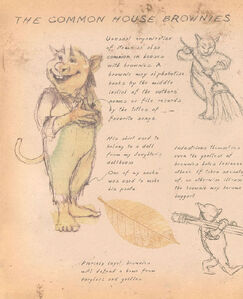 THE COMMON HOUSE BROWNIES
Unusual organization
of it is also
common in houses
with brownies. A
brownie may alphabetize
books by the middle
initial of the authors'
names or file records
by the titles of
favorite songs.
His shirt used to
belong to a doll
from my daughter's
dollhouse
One of my socks
was used to make
his pants
themselves
even the gentlest of
brownies
others if taken
of, or otherwise
the brownie may become
Fiercely loyal, brownies
will defend a home from
burglars and goblins